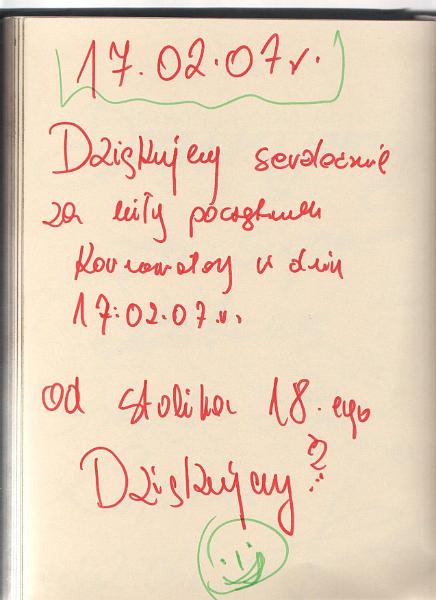 17.02.07r.
Dziękujemy serdecznie
za miły poczęstunek
w dniu
17.02.07.r.
Od stolika 18-ego
Dziękujemy